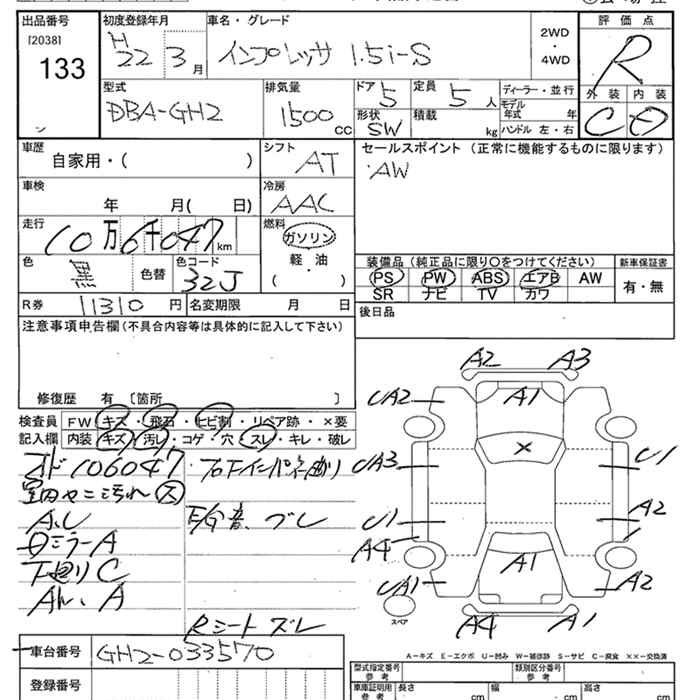 出品番号 初度登録年月 車名・グレード 2WD・4WD 評価点
[2038]
133
H22 3月
インプレッサ 1.5i-S
R
型式 排気量 ドア 定員 ディーラー・並行 外装 内装
DBA-GH2 1500cc 5 5人 モデル年式 年
形状 積載 kg ハンドル 左・右
SW
C D
車歴 シフト セールスポイント(正常に機能するものに限ります)
自家用・( ) AT AW
車検 冷房
年 月( 日) AAC
走行 燃料
10万6千047km ガソリン・軽油( )
装備品(純正品に限り○をつけてください) 新車保証書
色 色替 色コード
黒 32J
PS PW ABS エアB AW 有・無
SR ナビ TV カワ
R券 11310円 名変期限 月 日 後日品
注意事項申告欄(不具合内容等は具体的に記入して下さい)
修復歴 有〔箇所 〕
検査員記入欄 FW キズ・飛石・ヒビ割・リペア跡・×要
内装 キズ・汚レ・コゲ・穴・スレ・キレ・破レ
オド106047
室内ヤニ汚れ
A、U
ミラーA
下廻りC
A
E/G音、ブレ
Rシートズレ
A2 A3
UA2 A1
UA3 × U1
U1 A2
A4 A1
UA1 A2
スペア A4 A1
A-キズ E-エクボ U-凹み W-補修跡 S-サビ C-腐食 ××-交換済
車台番号 GH2-033570
登録番号
型式指定番号 参考 類別区分番号 参考
車庫証明用 参考 長さ cm 幅 cm 高さ cm